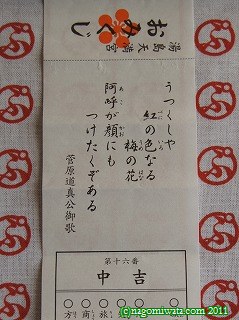 湯島天満宮
おみくじ
うつくしや
紅の色なる
梅の花
阿呼が顔にも
つけたくぞある
菅原道真公御歌
第十六番
中吉
方 商 旅
©nagomiwata.com 2011